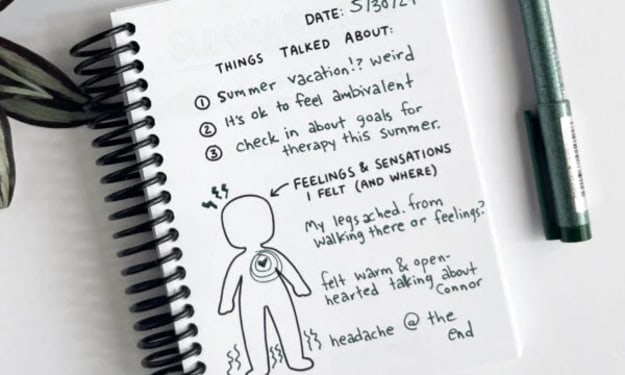 DATE: 5/30/21
THINGS TALKED ABOUT:
① Summer vacation!? weird
② It's ok to feel ambivalent
③ check in about goals for
therapy this summer.
FEELINGS & SENSATIONS
I FELT (AND WHERE)
My legs ached. from
walking there or feelings?
felt warm & open-
hearted talking about
Connor
headache @ the
end